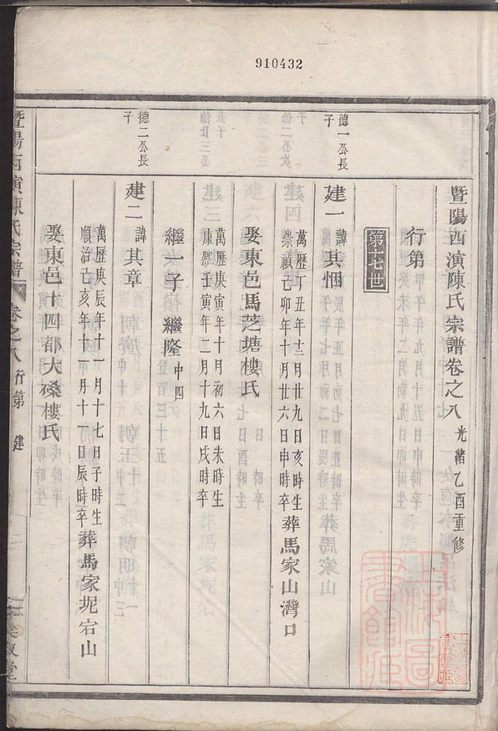 910432
暨陽西演陳氏宗譜卷之八 光緒乙酉重修
行第
第十七世
德一公長子
建一 諱其佃
萬歷丁丑年十二月廿九日亥時生
崇禎己卯年十月廿六日申時卒
葬馬家山灣口
娶東邑馬芝塘樓氏
萬歷庚寅年十月初六日未時生
康熙壬寅年二月十九日戌時卒
繼一子 繼隆 中四
德二公長子
建二 諱其章
萬歷庚辰年十一月十七日子時生
順治己亥年十月十一日辰時卒
葬馬家坭宕山
娶東邑十四都大磉樓氏
暨陽西演陳氏宗譜
卷之八 行第 建